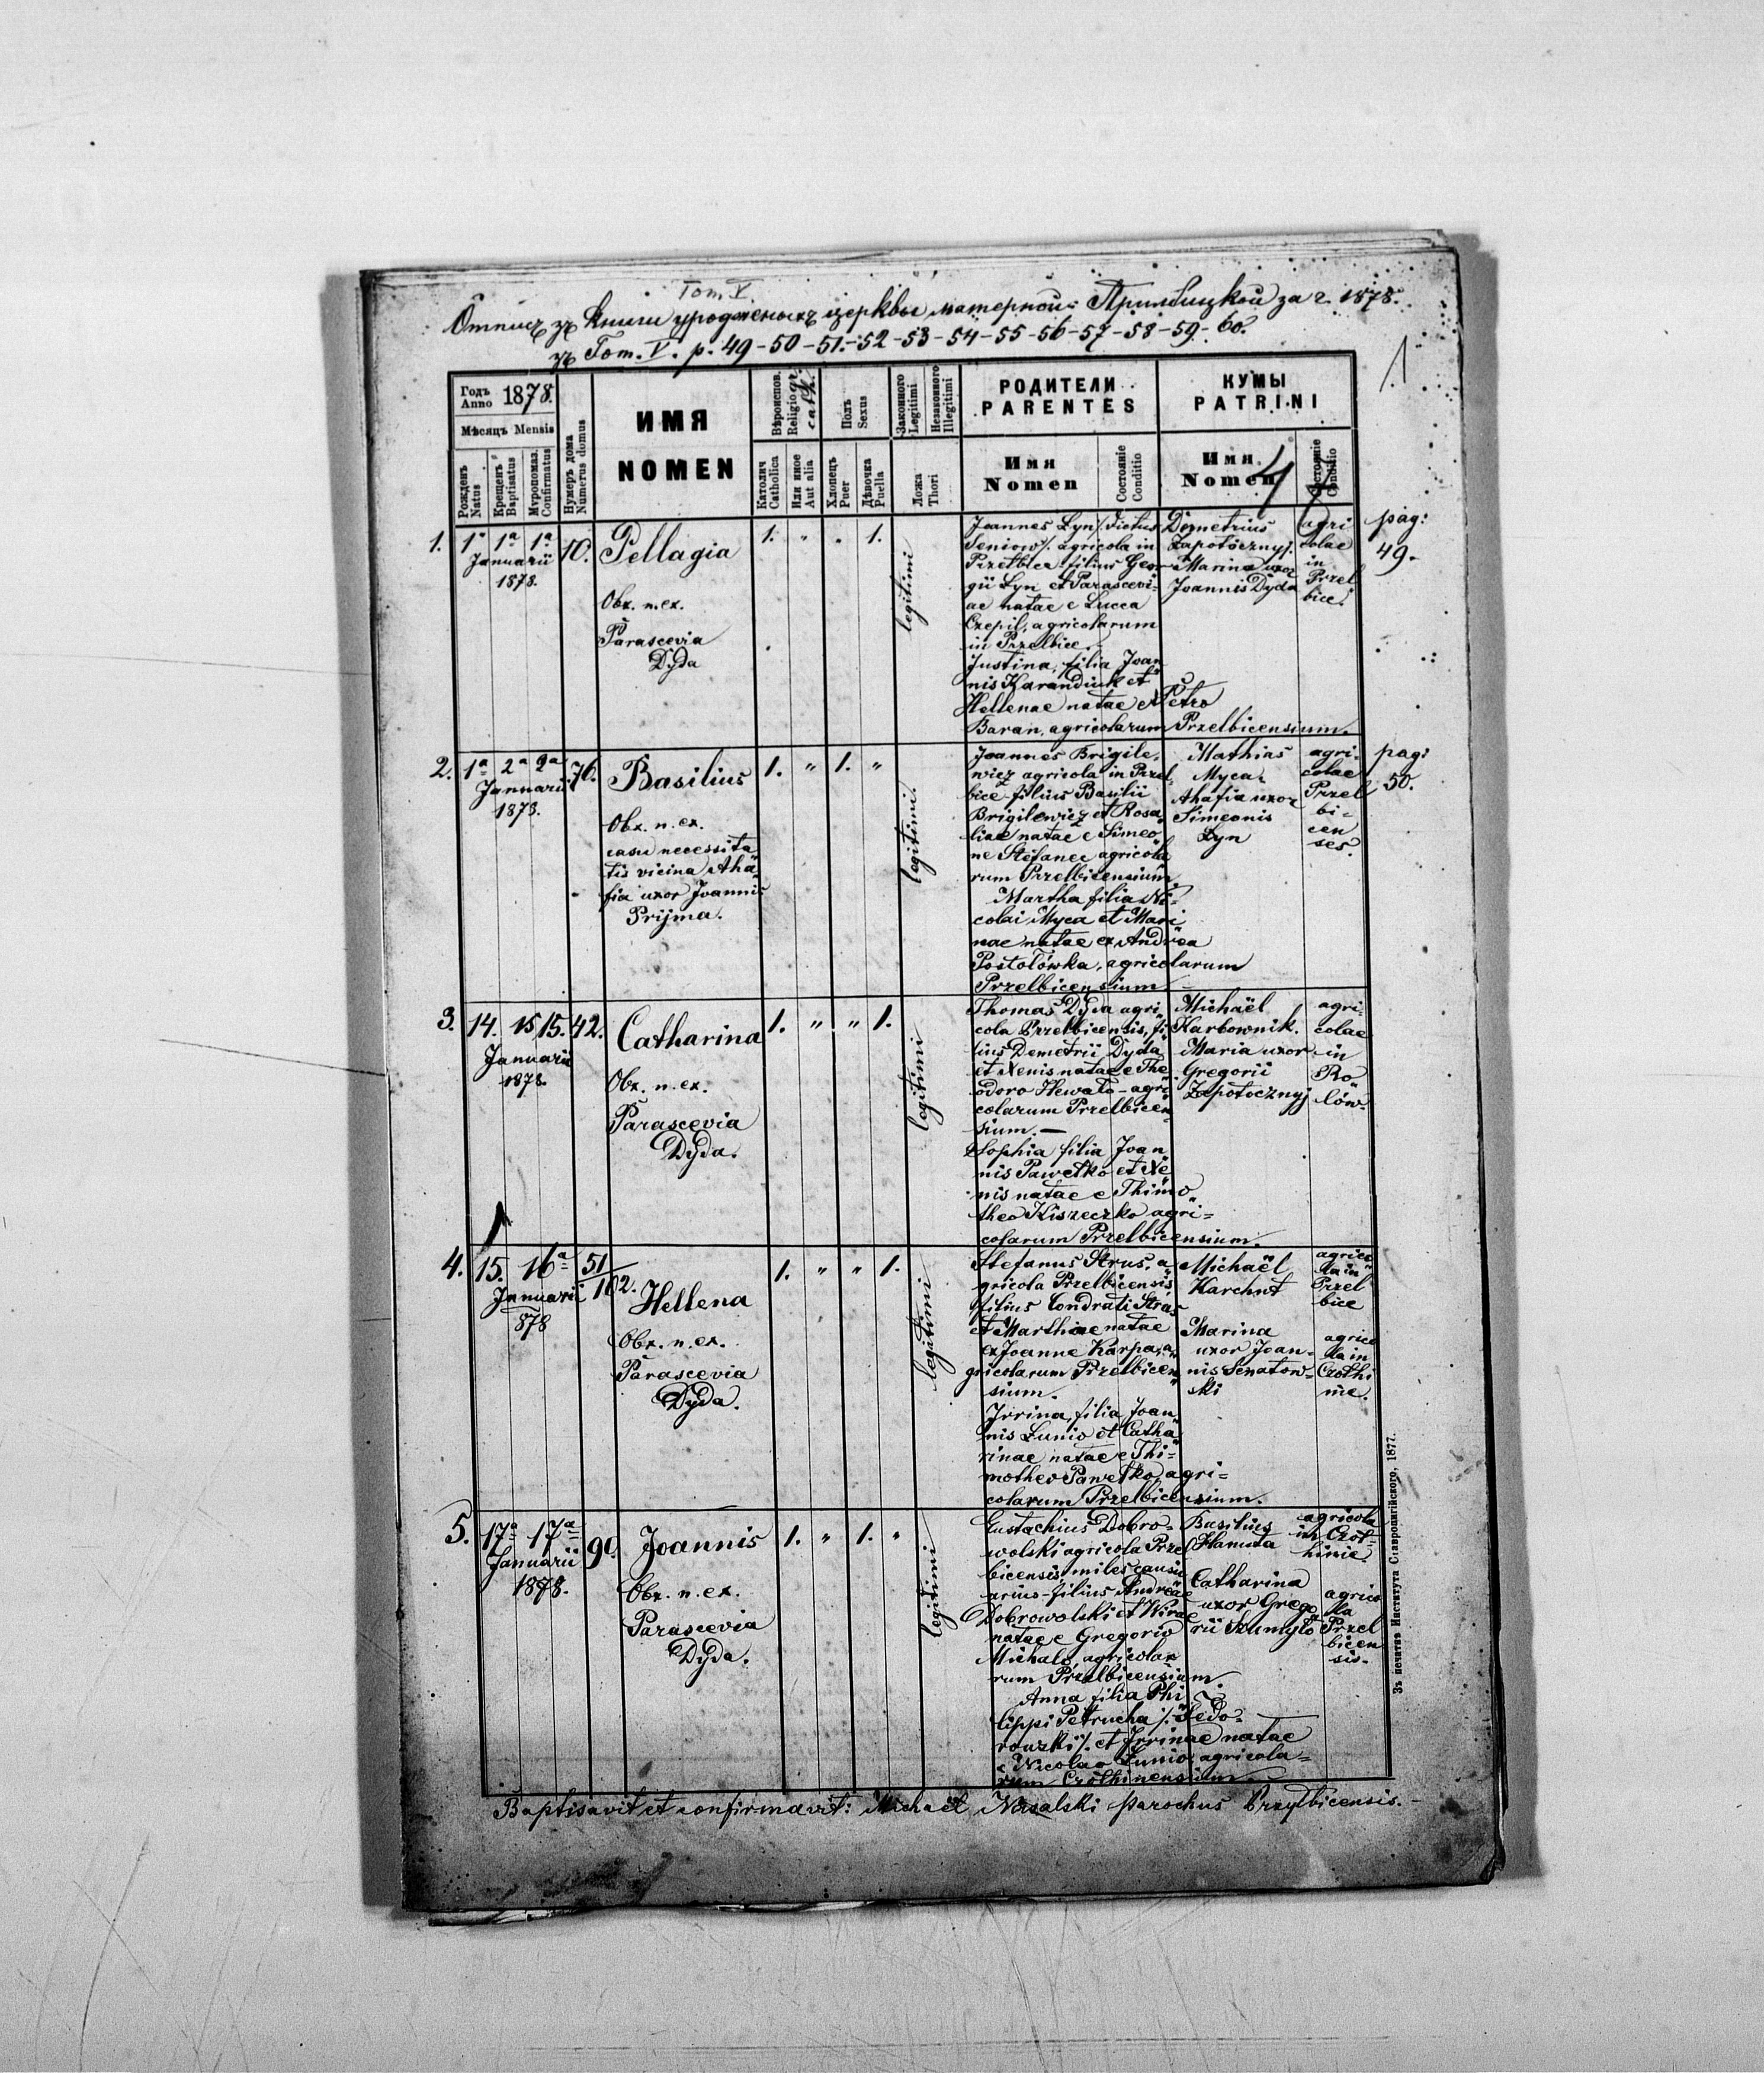 Tom. V.
Отпись зъ книги урожденыхъ церквы матерной Прилбицкой за г. 1878.
зъ Tom. V. p. 49-50-51-52-53-54-55-56-57-58-59-60.
1
Годъ Anno 1878.
Мѣсяцъ Mensis
Рожденъ Natus
Крещенъ Baptisatus
Муропомаз. Confirmatus
Нумеръ дома Numerus domus
ИМЯ
NOMEN
Вѣроисповѣд. Religio gr. cath.
Католич Catholica
Или иное Aut alia
Полъ Sexus
Хлопець Puer
Дѣвочка Puella
Законного Legitimi
Незаконного Illegitimi
Ложа Thori
РОДИТЕЛИ
PARENTES
Имя
Nomen
Состояніе
Conditio
КУМЫ
PATRINI
Имя
Nomen
Состояніе
Conditio
1.
1a 1a 1a
Januarii
1878.
10.
Pellagia
Obx. n. ex.
Parascevia
Dyda
1. " . 1.
legitimi
Joannes Lyn /. dictus
Seniow /. agricola in
Przelbice filius Geor
gii Lyn et Parascevi
ae natae e Lucca
Czepil, agricolarum
in Przelbice.
Justina, filia Joan
nis Karandiuk et
Hellenae natae ex Petro
Baran, agricolarum Przelbicensium.
Demetrius
Zapotocznyj.
Marina uxor
Joannis Dyda
agri
colae
in
Przel
bice.
pag:
49.
2.
1a 2a 2a
Januarii
1878.
76.
Basilius
Obx. n. ex.
casu necessita
tis vicina Aha
fia uxor Joannis
Prijma.
1. " 1. "
legitimi.
Joannes Brigile
wicz agricola in Przel
bice filius Basilii
Brigilewicz et Rosa
liae natae e Simeo
ne Stefanec agricola
rum Przelbicensium
Martha filia Ni
colai Myca et Mari
nae natae ex Andrea
Postolówka, agricolarum
Przelbicensium
Mathias
Myca
Ahafia uxor
Simeonis
Lyn
agri
colae
Przel
bi
cen
ses.
pag:
50.
3.
14. 15 15.
Januarii
1878.
42.
Catharina
Obx. n. ex.
Parascevia
Dyda.
1. " " 1.
legitimi
Thomas Dyda agri
cola Przelbicensis, fi
lius Demetrii Dyda
et Xenis natae e The
odoro Hewalo - agri
colarum Przelbicen
sium. -
Sophia filia Joan
nis Pawelko et Xe
nis natae e Thimo
theo Kiszeczko agri=
colarum Przelbicensium.
Michaël
Karbownik.
Maria uxor
Gregorii
Zapotocznyj
agri
colae
in
Ro
lów.
4.
15. 16a
Januarii
878
51/102.
Hellena
Obx. n. ex.
Parascevia
Dyda.
1. " " 1.
legitimi
Stefanus Strus, a
gricola Przelbicensis,
filius Condrati Strus
et Marthae natae
ex Joanne Karpa, a
gricolarum Przelbicen
sium.
Irrina, filia Joan
nis Lunio et Catha
rinae natae e Thi=
motheo Pawelko agri=
colarum Przelbicensium.
Michaël
Karchut
Marina
uxor Joan-
nis Senatow-
ski
agrico
la in
Przel
bice
agrico
la in
Czolhi
nie.
5.
17a 17a
Januarii
1878.
90.
Joannis
Obx. n. ex.
Parascevia
Dyda.
1. " 1. "
legitimi
Eustachius Dobro-
wolski agricola Przel
bicensis, miles causi
arius - filius Andreae
Dobrowolski et Wirae
natae e Gregorio
Michalo, agricola
rum Przelbicensium.
Anna filia Phi
lippi Petrucha /. Fedo-
rouzki /. et Irrinae natae
e Nicolao Lunio, agricola=
rum Czolhinensium.
Basilius
Hamuta
Catharina
uxor Grego
rii Szumylo
agricola
in Czol
hinie
agrico
la
Przel
bicen
sis.
Baptisavit et confirmavit: Michaël Nasalski parochus Przylbicensis.
Зъ печатнѣ Института Ставропигійского, 1877.